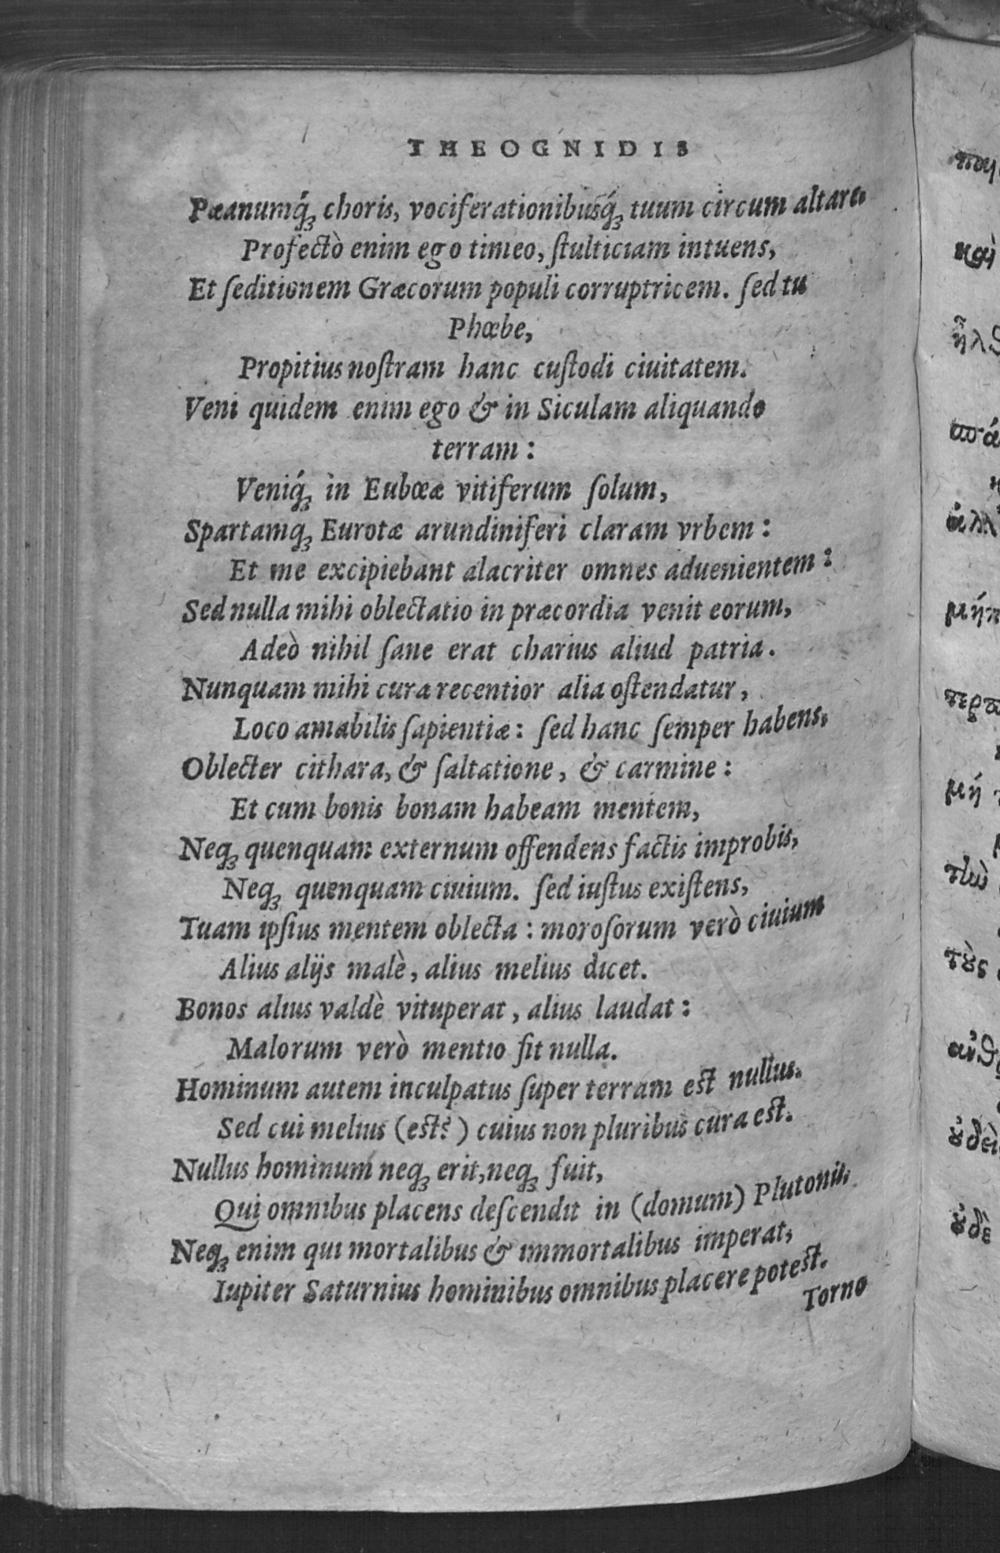 THEOGNIDIS
Pæanumq́; choris, vociferationibusq́; tuum circum altare.
Profectò enim ego timeo, ſtulticiam intuens,
Et ſeditionem Græcorum populi corruptricem. ſed tu
Phœbe,
Propitius noſtram hanc cuſtodi ciuitatem.
Veni quidem enim ego & in Siculam aliquando
terram:
Veniq́; in Eubœæ vitiferum ſolum,
Spartamq; Eurotæ arundiniferi claram vrbem:
Et me excipiebant alacriter omnes aduenientem:
Sed nulla mihi oblectatio in præcordia venit eorum,
Adeò nihil ſane erat charius aliud patria.
Nunquam mihi cura recentior alia oſtendatur,
Loco amabilis ſapientiæ: ſed hanc ſemper habens,
Oblecter cithara, & ſaltatione, & carmine:
Et cum bonis bonam habeam mentem,
Neq; quenquam externum offendens factis improbis,
Neq; quenquam ciuium. ſed iuſtus exiſtens,
Tuam ipſius mentem oblecta: moroſorum verò ciuium
Alius alijs malè, alius melius dicet.
Bonos alius valdè vituperat, alius laudat:
Malorum verò mentio fit nulla.
Hominum autem inculpatus ſuper terram eſt nullus.
Sed cui melius (eſt?) cuius non pluribus cura eſt.
Nullus hominum neq; erit, neq; fuit,
Qui omnibus placens deſcendit in (domum) Plutonis.
Neq; enim qui mortalibus & immortalibus imperat,
Iupiter Saturnius hominibus omnibus placere poteſt.
Torno
πο
καὶ
ἦλθ
πα
ἀλλ
μήπ
περ
μή
τὼ
τὸς
ανθ
ȣ̓δὲ